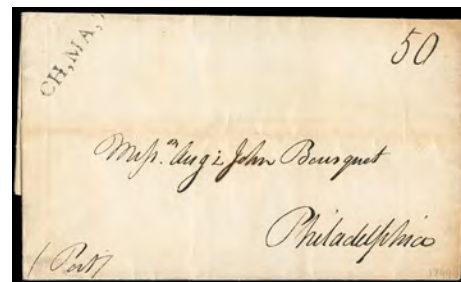 CH,MA,
50
Messrs. Aug & John Bousquet
Philadelphia
(Post)
1794